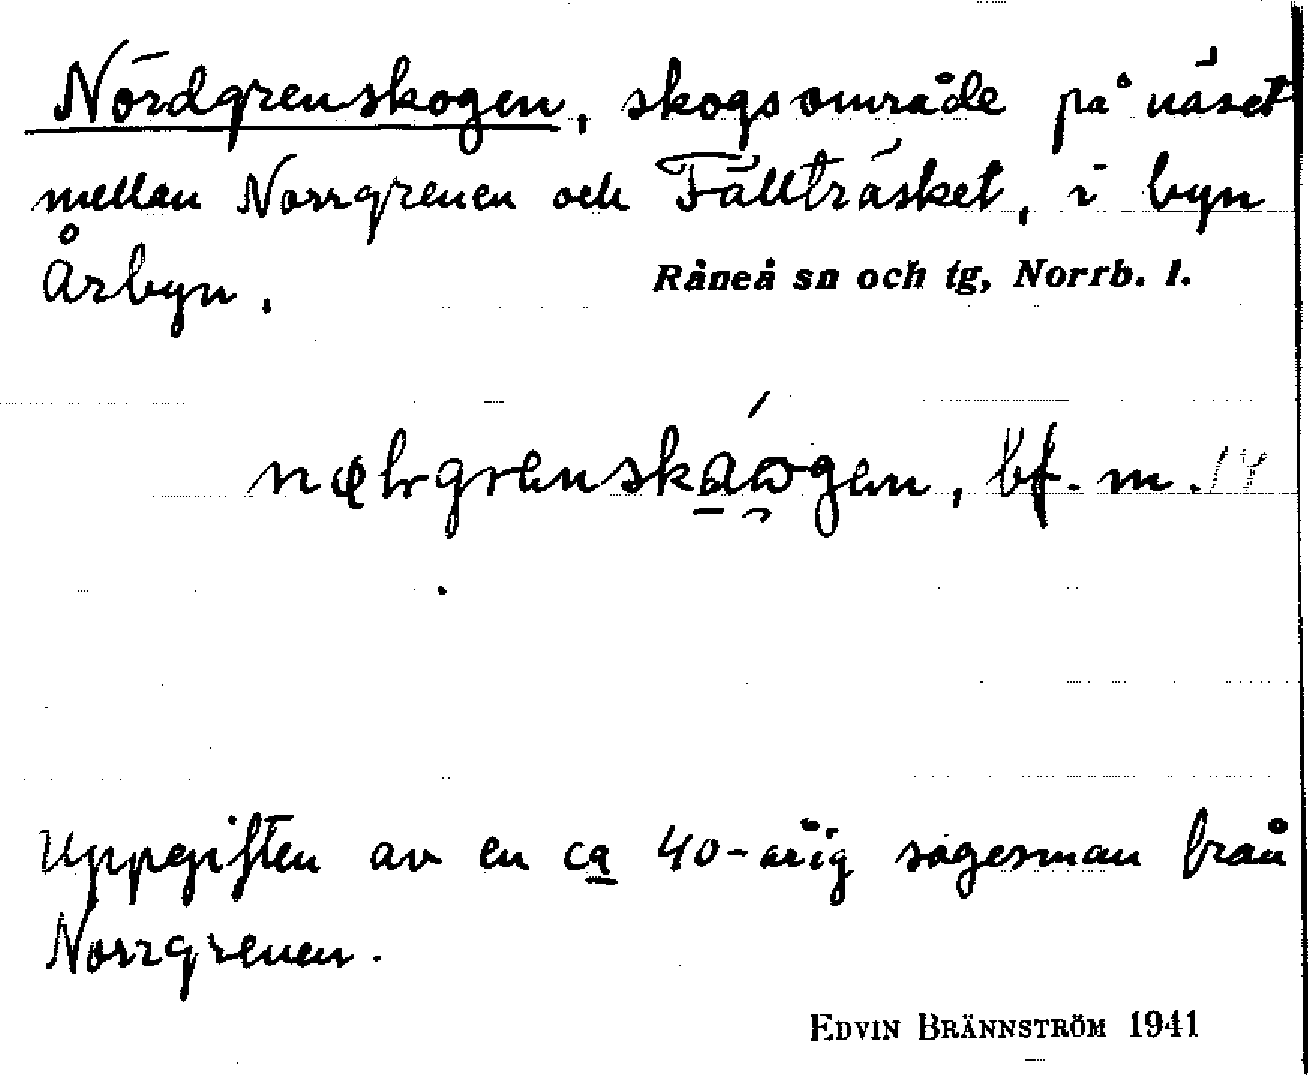 Nördgrenskogen, skogsområde på näset
mellan Norrgrenen och Fällträsket, i byn
Årbyn.
Råneå sn och tg, Norrb. l.
bf. m.
Uppgiften av en ca 40-årig sagesman från
Norrgrenen.
EDVIN BRÄNNSTRÖM 1941